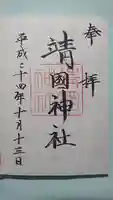 奉拝
靖國神社
平成二十四年十月十三日